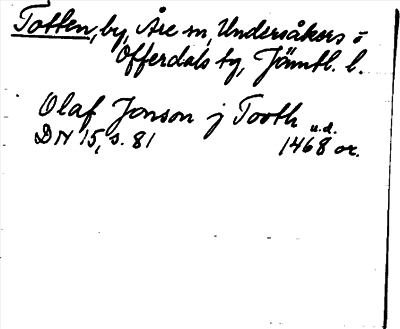 Totten, by, Åre sn, Undersåkers o
Offerdals tg, Jämtl. l.
Olaf Jonson j Tooth u.d.
DN 15, s. 81 1468 or.